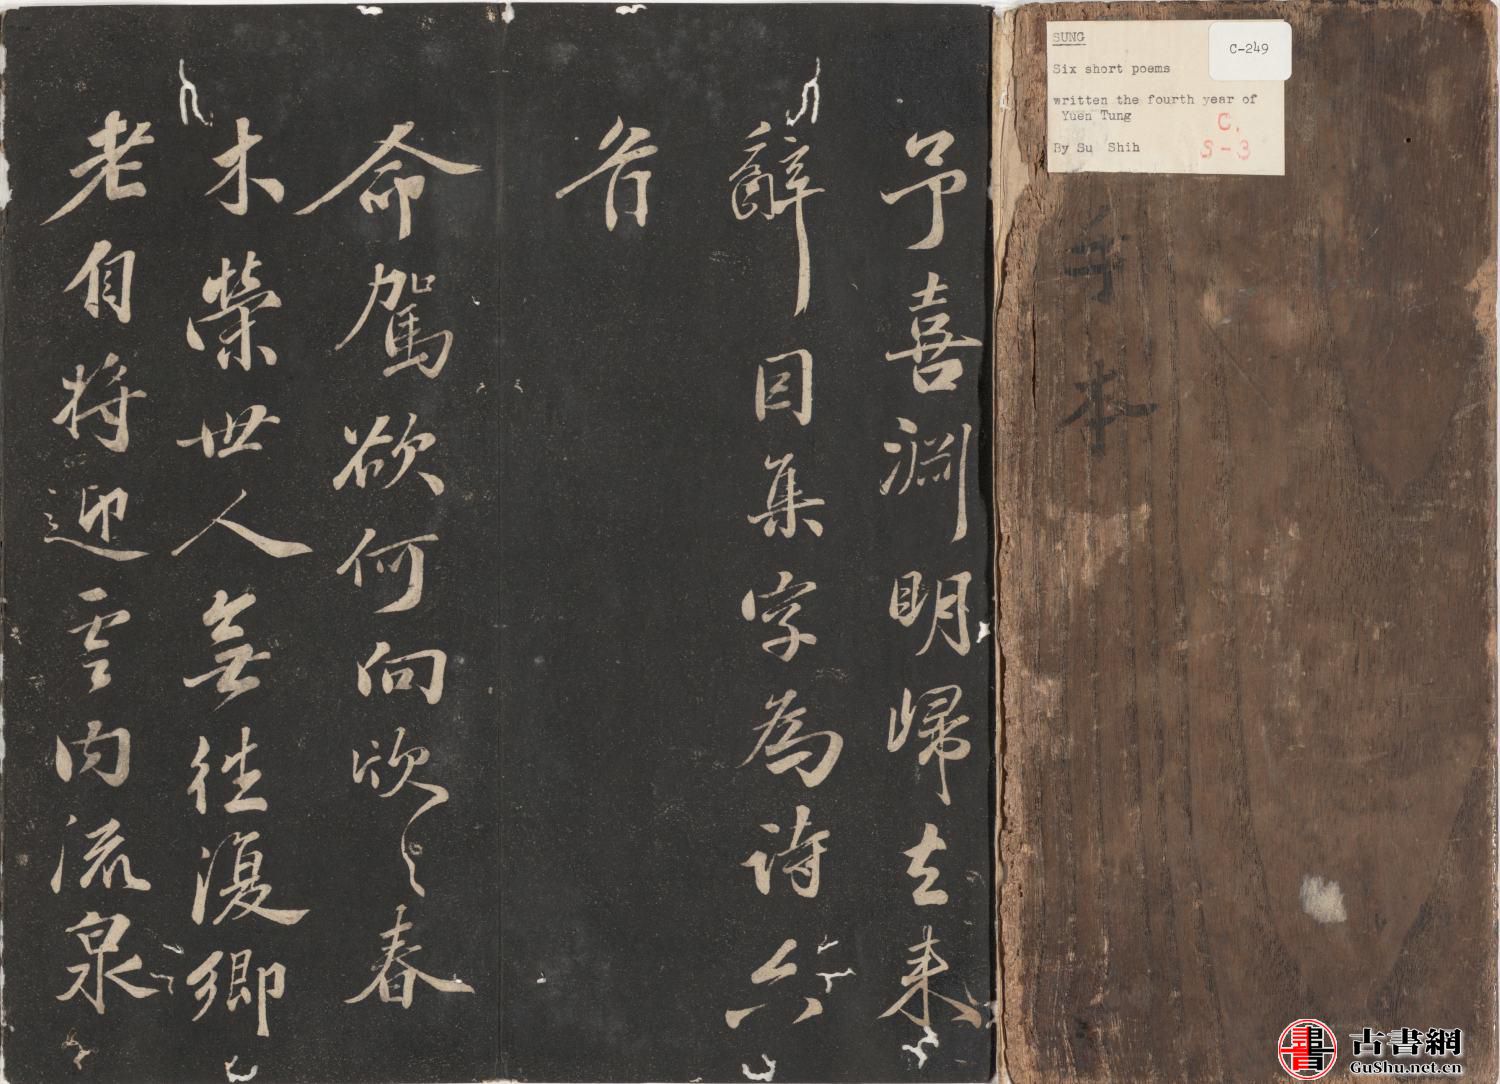 SUNG
Six short poems
written the fourth year of
Yuen Tung
By Su Shih
C-249
C.
S-3
手本
予喜淵明歸去来
辭因集字為詩六
首
命駕欲何向欣〻春
木榮世人無往復鄉
老自将迎雲内流泉
古書網
GuShu.net.cn